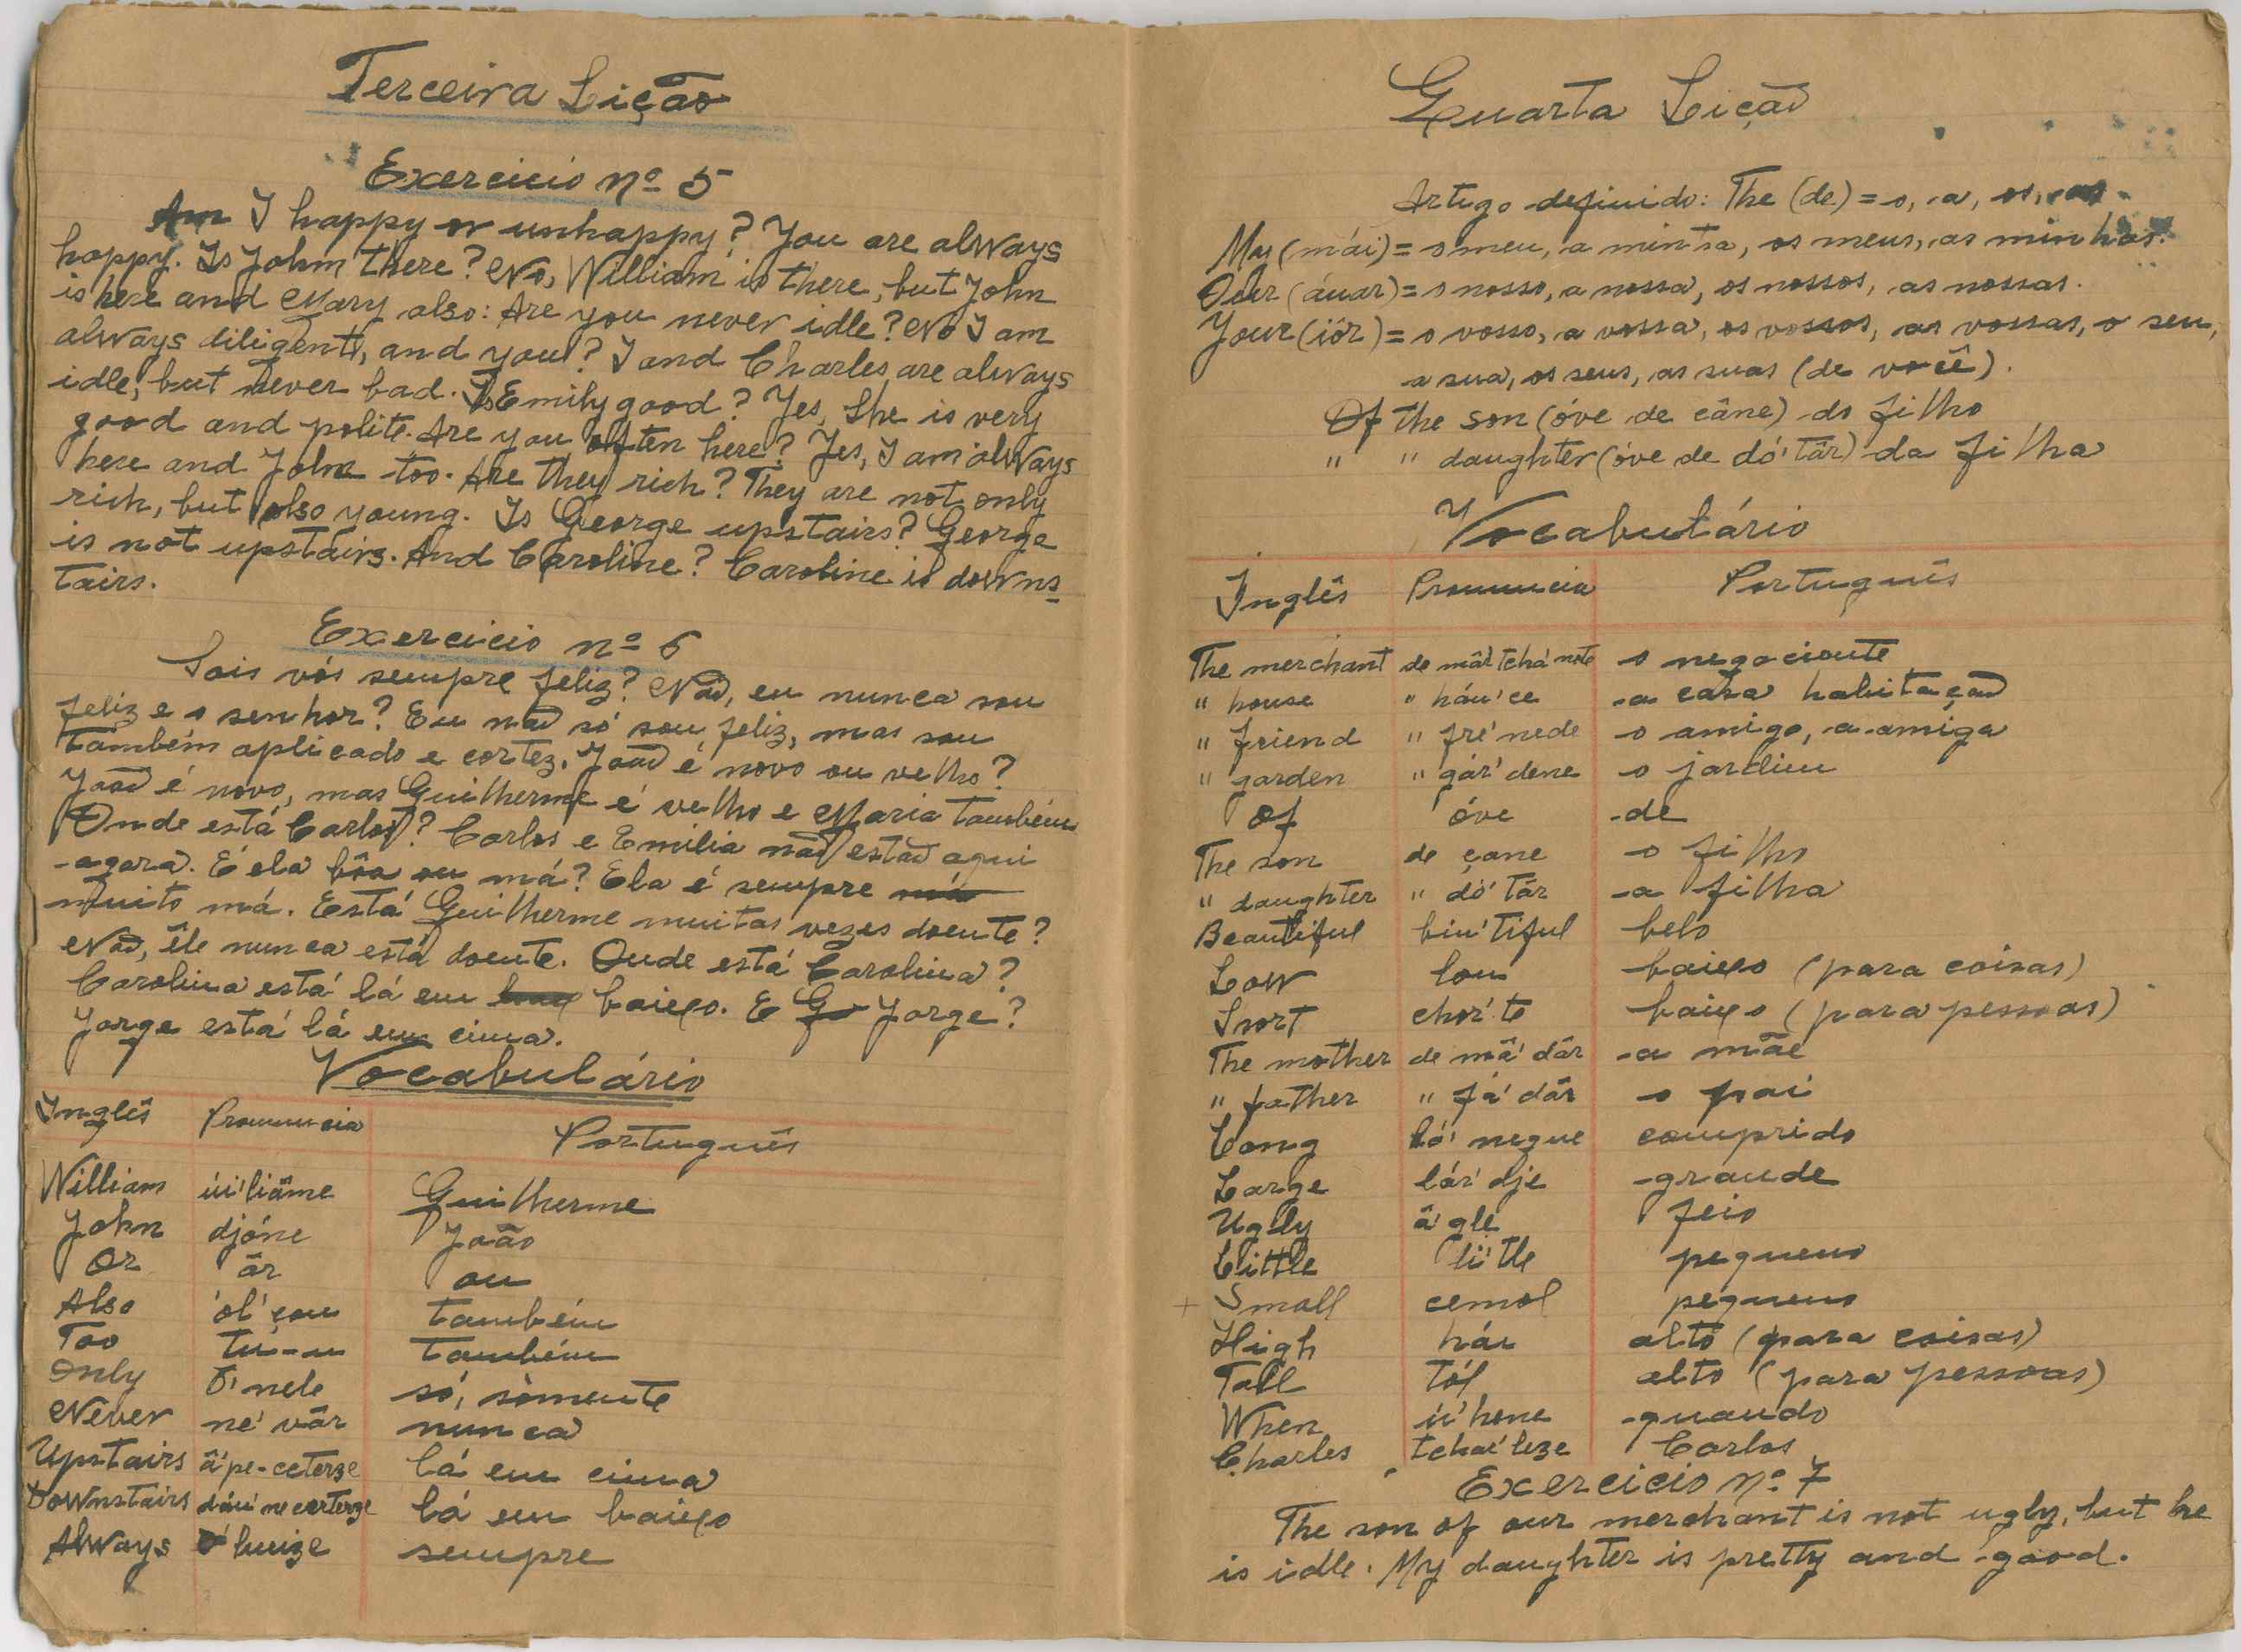 Terceira Lição
Exercicio nº 5
Am I happy or unhappy? You are always
happy. Is John there? No, William is there, but John
is here and Mary also: Are you never idle? No I am
always diligent, and you? I and Charles are always
idle, but never bad. Is Emily good? Yes, She is very
good and polite. Are you often here? Yes, I am always
here and John too. Are they rich? They are not only
rich, but also young. Is George upstairs? George
is not upstairs. And Caroline? Caroline is downs-
tairs.
Exercicio nº 6
Sois vós sempre feliz? Não, eu nunca sou
feliz e o senhor? Eu não só sou feliz, mas sou
também aplicado e cortez. João é novo ou velho?
João é novo, mas Guilherme é velho e Maria também
Onde está Carlos? Carlos e Emilia não estão aqui
agora. É ela bôa ou má? Ela é sempre má
muito má. Está Guilherme muitas vezes doente?
Não, êle nunca está doente. Onde está Carolina?
Carolina está lá em baixo. E Jorge?
Jorge está lá em cima.
Vocabulário
Inglês Pronuncia Português
William úi'liâme Guilherme
John djóne João
Or âr ou
Also ól'çou também
Too tu-u também
Only ô'nele só, sòmente
Never né'vâr nunca
Upstairs â'pe-ceterze lá em cima
Downstairs dáu'neceterze lá em baixo
Always ó'lueize sempre
Quarta Lição
Artigo definido: The (de) = o, a, os, as.
My (mái) = o meu, a minha, os meus, as minhas.
Our (áuar) = o nosso, a nossa, os nossos, as nossas.
Your (iór) = o vosso, a vossa, os vossos, as vossas, o seu,
a sua, os seus, as suas (de você).
Of the son (óve de câne) do filho
" " daughter (óve de dó'târ) da filha
Vocabulário
Inglês Pronuncia Português
The merchant de mâr'tchá'nete o negociante
" house " háu'ce a casa habitação
" friend " fré'nede o amigo, a amiga
" garden " gár'dene o jardim
Of óve de
The son de çane o filho
" daughter " dó'târ a filha
Beautiful biu'tiful belo
Low lou baixo (para coisas)
Snort chór'te baixo (para pessoas)
The mother de mâ'dâr a mãe
" father " fá'dâr o pai
Long ló'negue comprido
Large lár'dje grande
Ugly â'gle feio
Little lí'tle pequeno
+ Small cemol pequeno
High hái alto (para coisas)
Tall tól alto (para pessoas)
When ú'hene quando
Charles tchar'leze Carlos
Exercicio nº 7
The son of our merchant is not ugly, but he
is idle. My daughter is pretty and good.